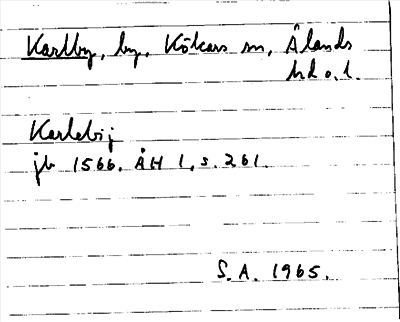 Karlby, by, Kökars sn, Ålands
hd o. l.
Karlebij
jb 1566. ÅH 1, s. 261.
S. A. 1965.